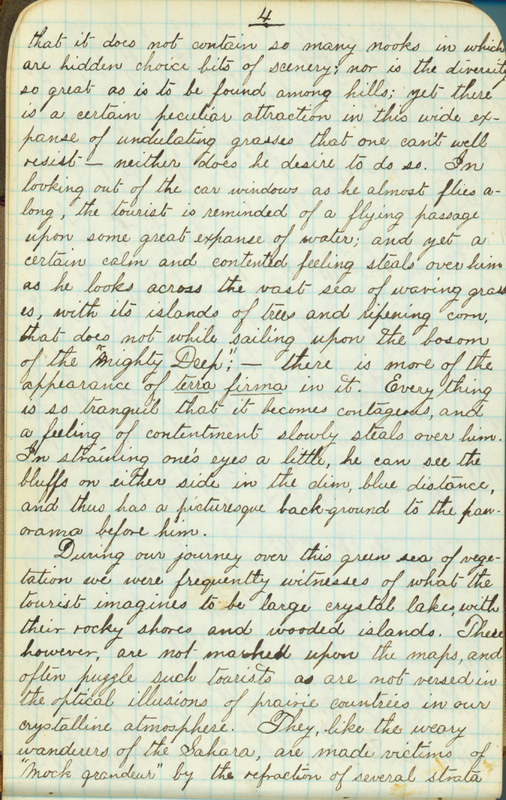 4
that it does not contain so many nooks in which
are hidden choice bits of scenery; nor is the diversity
so great as is to be found among hills; yet there
is a certain peculiar attraction in this wide ex-
panse of undulating grasses that one can't well
resist — neither does he desire to do so. In
looking out of the car windows as he almost flies a-
long, the tourist is reminded of a flying passage
upon some great expanse of water; and yet a
certain calm and contented feeling steals over him
as he looks across the vast sea of waving grass
es, with its islands of trees and ripening corn,
that does not while sailing upon the bosom
of the "Mighty Deep"; — there is more of the
appearance of terra firma in it. Every thing
is so tranquil that it becomes contageous, and
a feeling of contentment slowly steals over him.
In straining one's eyes a little, he can see the
bluffs on either side in the dim, blue distance,
and thus has a picturesque back-ground to the pan-
orama before him.
During our journey over this green sea of vege-
tation we were frequently witnesses of what the
tourist imagines to be large crystal lakes, with
their rocky shores and wooded islands. These
however, are not marked upon the maps, and
often puzzle such tourists as are not versed in
the optical illusions of prairie countries in our
crystalline atmosphere. They, like the weary
wanderers of the Sahara, are made victims of
"mock grandeur" by the refraction of several strata